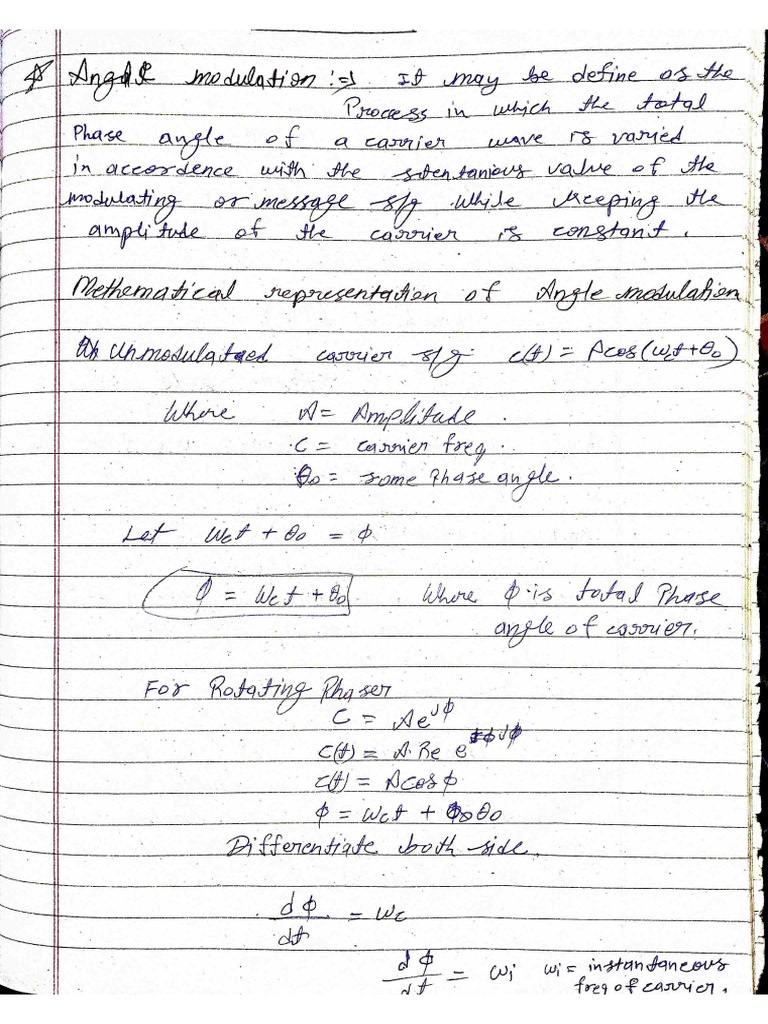 Angle modulation :⇒ It may be define as the
Process in which the total
Phase angle of a carrier wave is varied
in accordence with the
value of the
modulating or message s/g while keeping the
amplitude of the carrier is constant.
Methematical representation of Angle modulation
Unmodulated carrier s/g: c(t) = Acos(ωct+θo)
Where A = Amplitude.
C = carrier freq.
θo = some Phase angle.
Let ωct + θo = ϕ
ϕ = ωct + θo Where ϕ is total Phase
angle of carrier.
For Rotating Phaser
C = Ae^jϕ
c(t) = A.Re e^jϕ
c(t) = Acosϕ
ϕ = ωct + θo
Differentiate both side.
dϕ/dt = ωc
dϕ/dt = ωi ωi = instantaneous
freq of carrier.